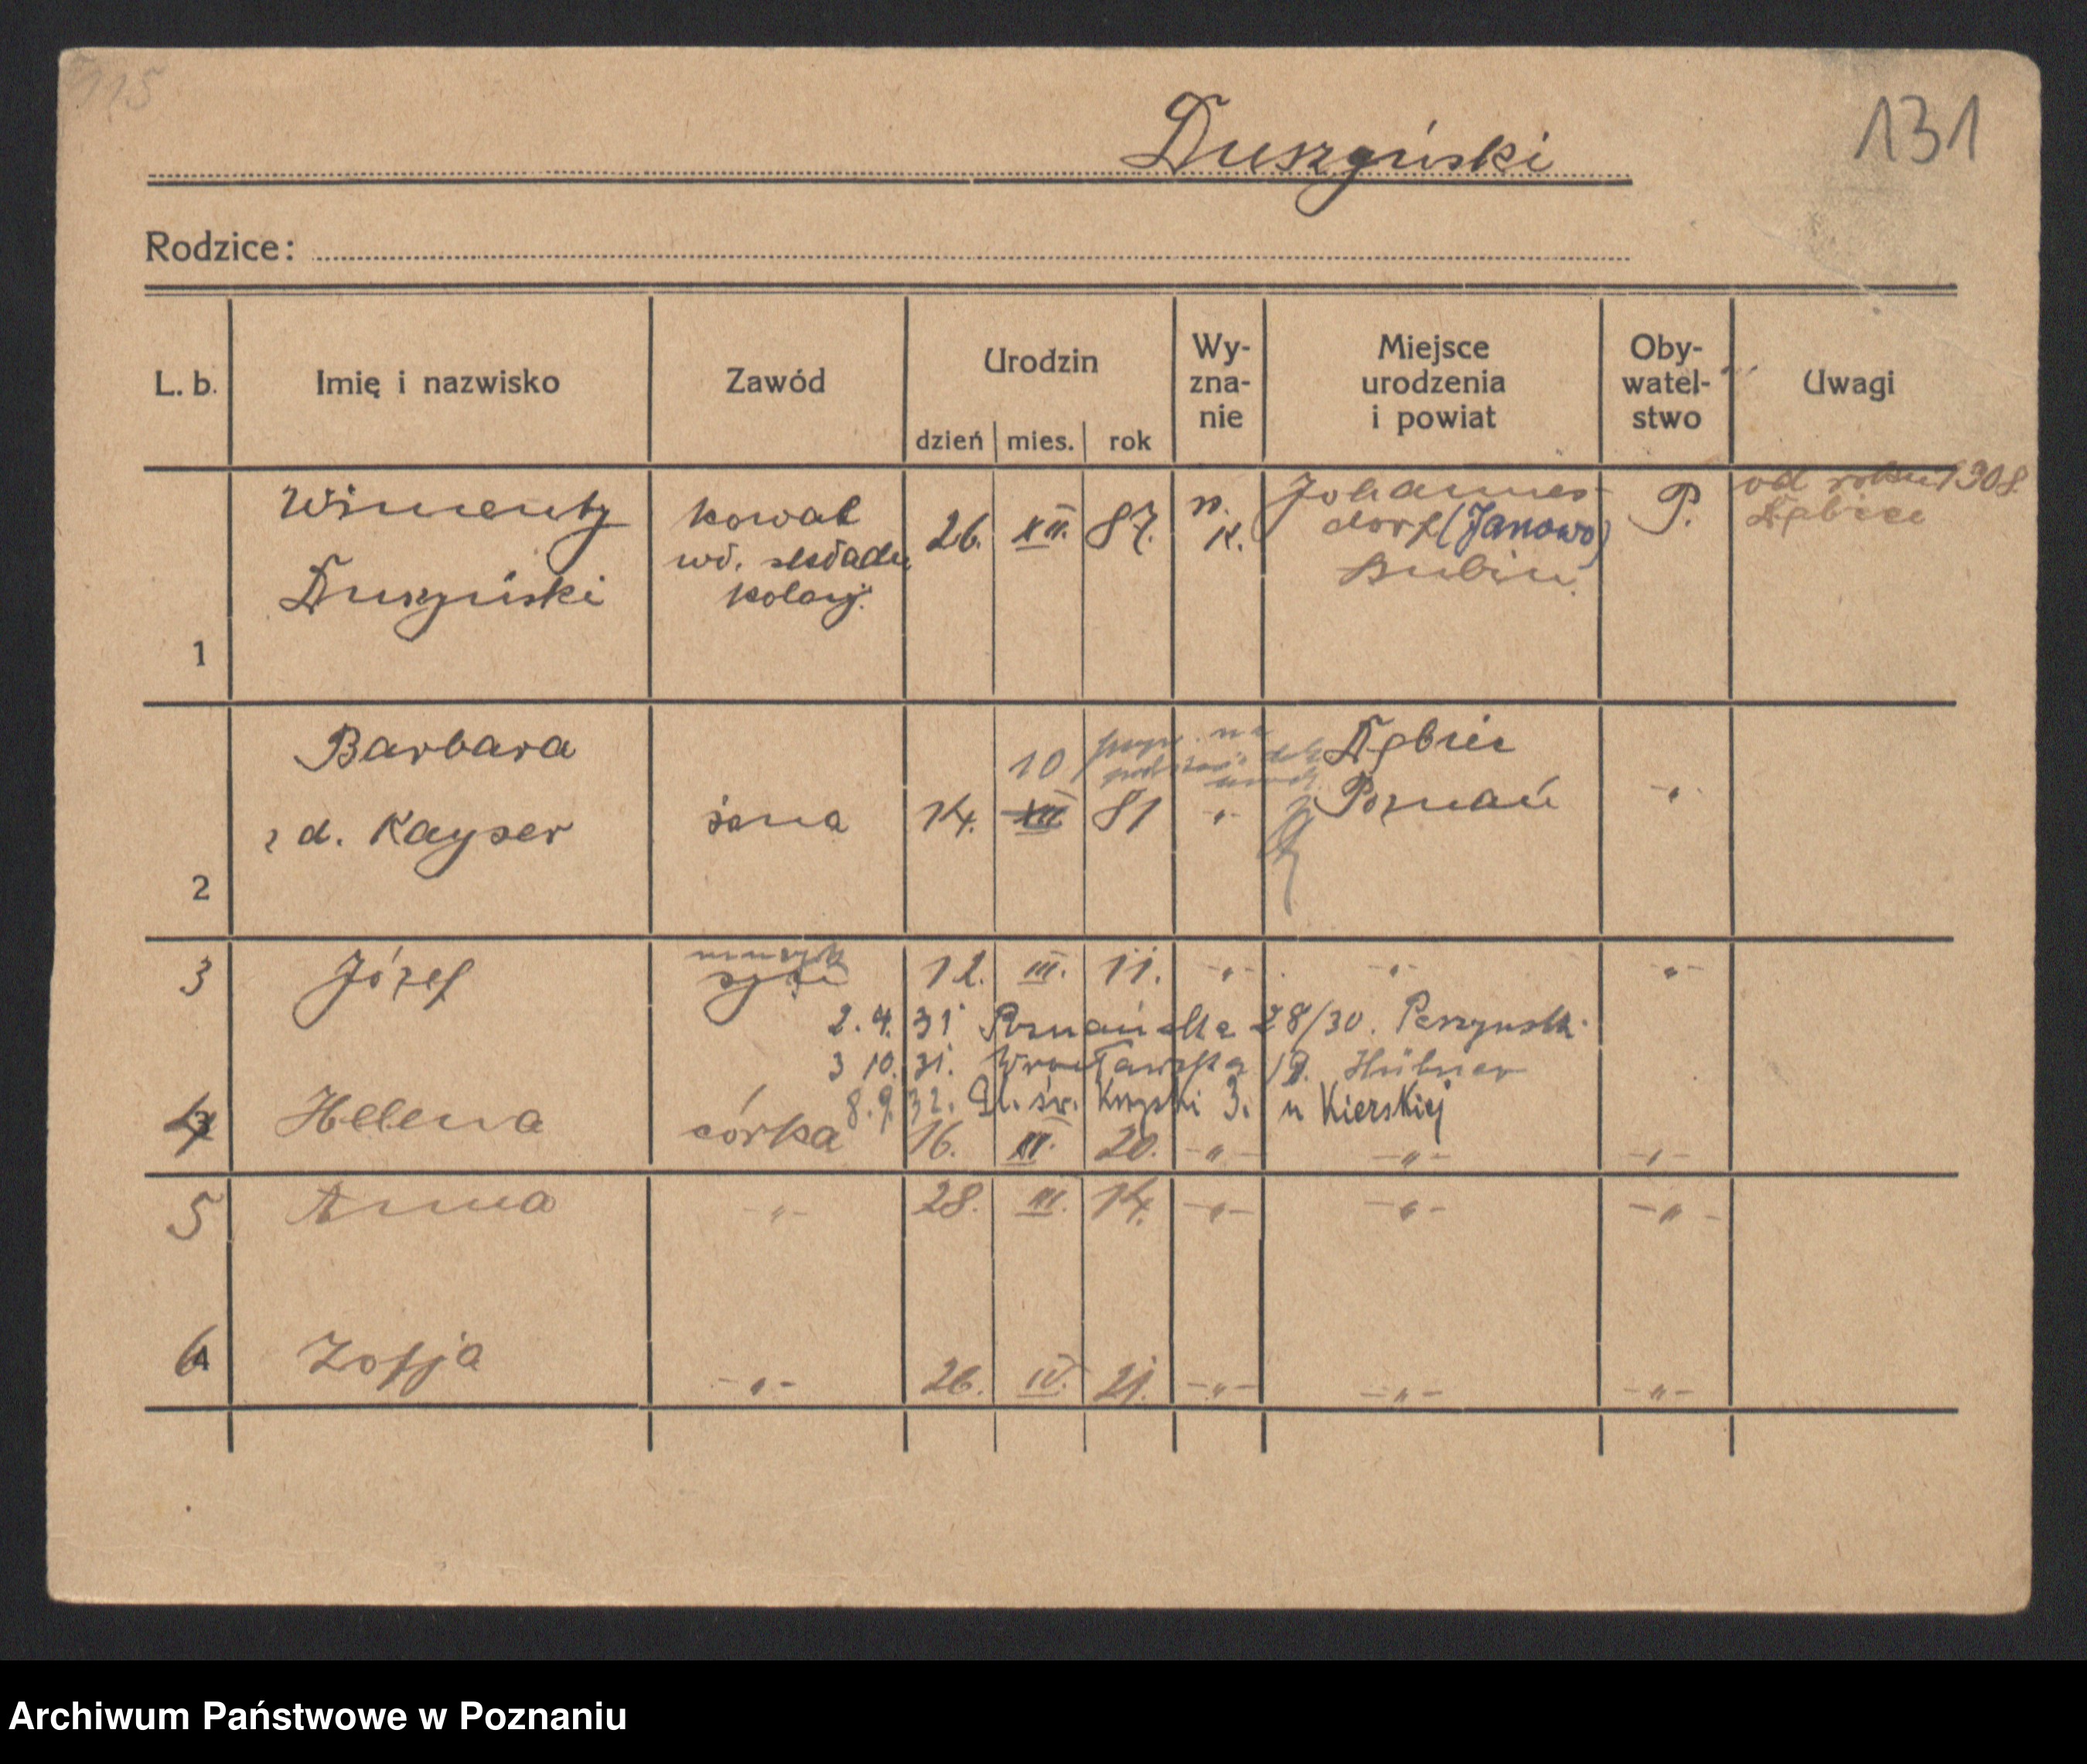 115
131
Duszyński
Rodzice:
L. b. Imię i nazwisko Zawód Urodzin dzień mies. rok Wy- zna- nie Miejsce urodzenia i powiat Oby- watel- stwo Uwagi
1 Wincenty Duszyński
kowal
wł. składu
kolonj.
26. XII. 87.
r. K.
Johannes-
dorf (Janowo)
Szubin.
P.
od roku 1908
Dębiec
2 Barbara
z d. Kayser
żona
14. XII 10 81 -"-
Dębiec
Poznań
-"-
3 Józef
muzyk
syn 12. III. 11. -"- -"- -"-
2. 4. 31 Poznańska 28/30.
3 10. 31. Wrocławska 19. Hübner
8. 9. 32. Pl. św. Krzyski 3. u Kierskiej
4 Helena córka 16. III. 20. -"- -"- -"-
5 Anna -"- 28. III. 14. -"- -"- -"-
6 Zofja -"- 26. IV. 21. -"- -"- -"-
Archiwum Państwowe w Poznaniu